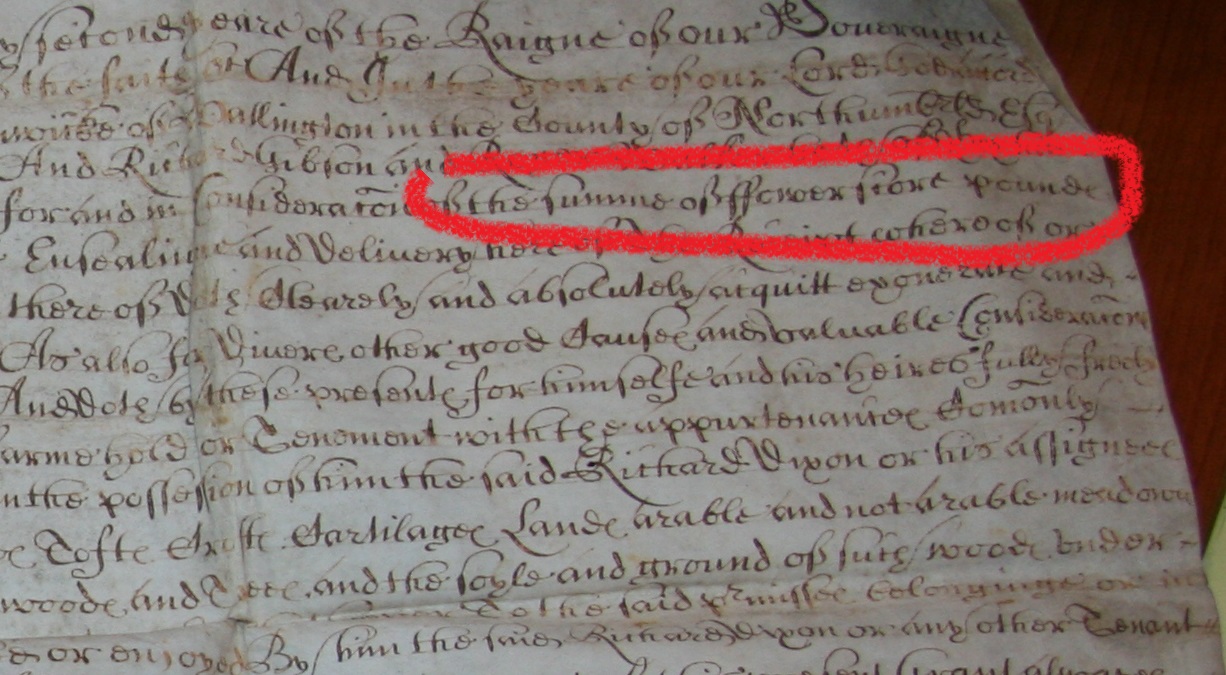 second yeare of the Raigne of our Soveraigne
And In the yeare of our Lord
of Wallington in the County of Northumbrld Esqr
And Richard Gibson and
for and in Consideracon of the summe of ffower score pounds
Ensealing and Delivery here of The Receipt whereof
there of Doth Clearely and absolutely acquitt exonerate and
As also for Divers other good Causes and valuable Consideracons
And Doth by these presents for himselfe and his heires fully freely
arme hold or Tenement with the appurtenances Comonly
in the possession of him the said Richard Dixon or his assignes
Tofts Crofts Cartilages Lands arable and not arable meadows
woods and Trees and the soyle and ground of such woods Under
To the said p'misses belonginge or in
or enjoyed By him the said Richard Dixon or any other Tenant